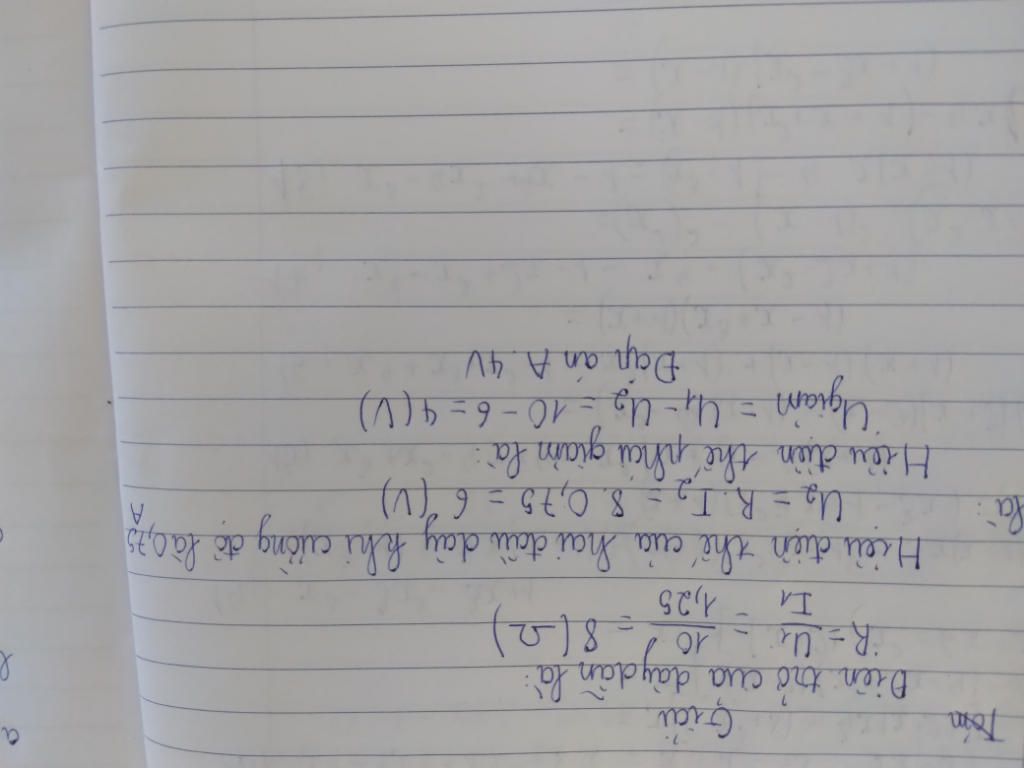 Tóm Giải
Điện trở của dây dẫn là:
R = U1/I1 = 10/1,25 = 8 (Ω)
Hiệu điện thế của hai đầu dây khi cường độ là 0,75 A
là: U2 = R.I2 = 8.0,75 = 6 (V)
Hiệu điện thế phải giảm là:
Ugiảm = U1 - U2 = 10 - 6 = 4 (V)
Đáp án A. 4V